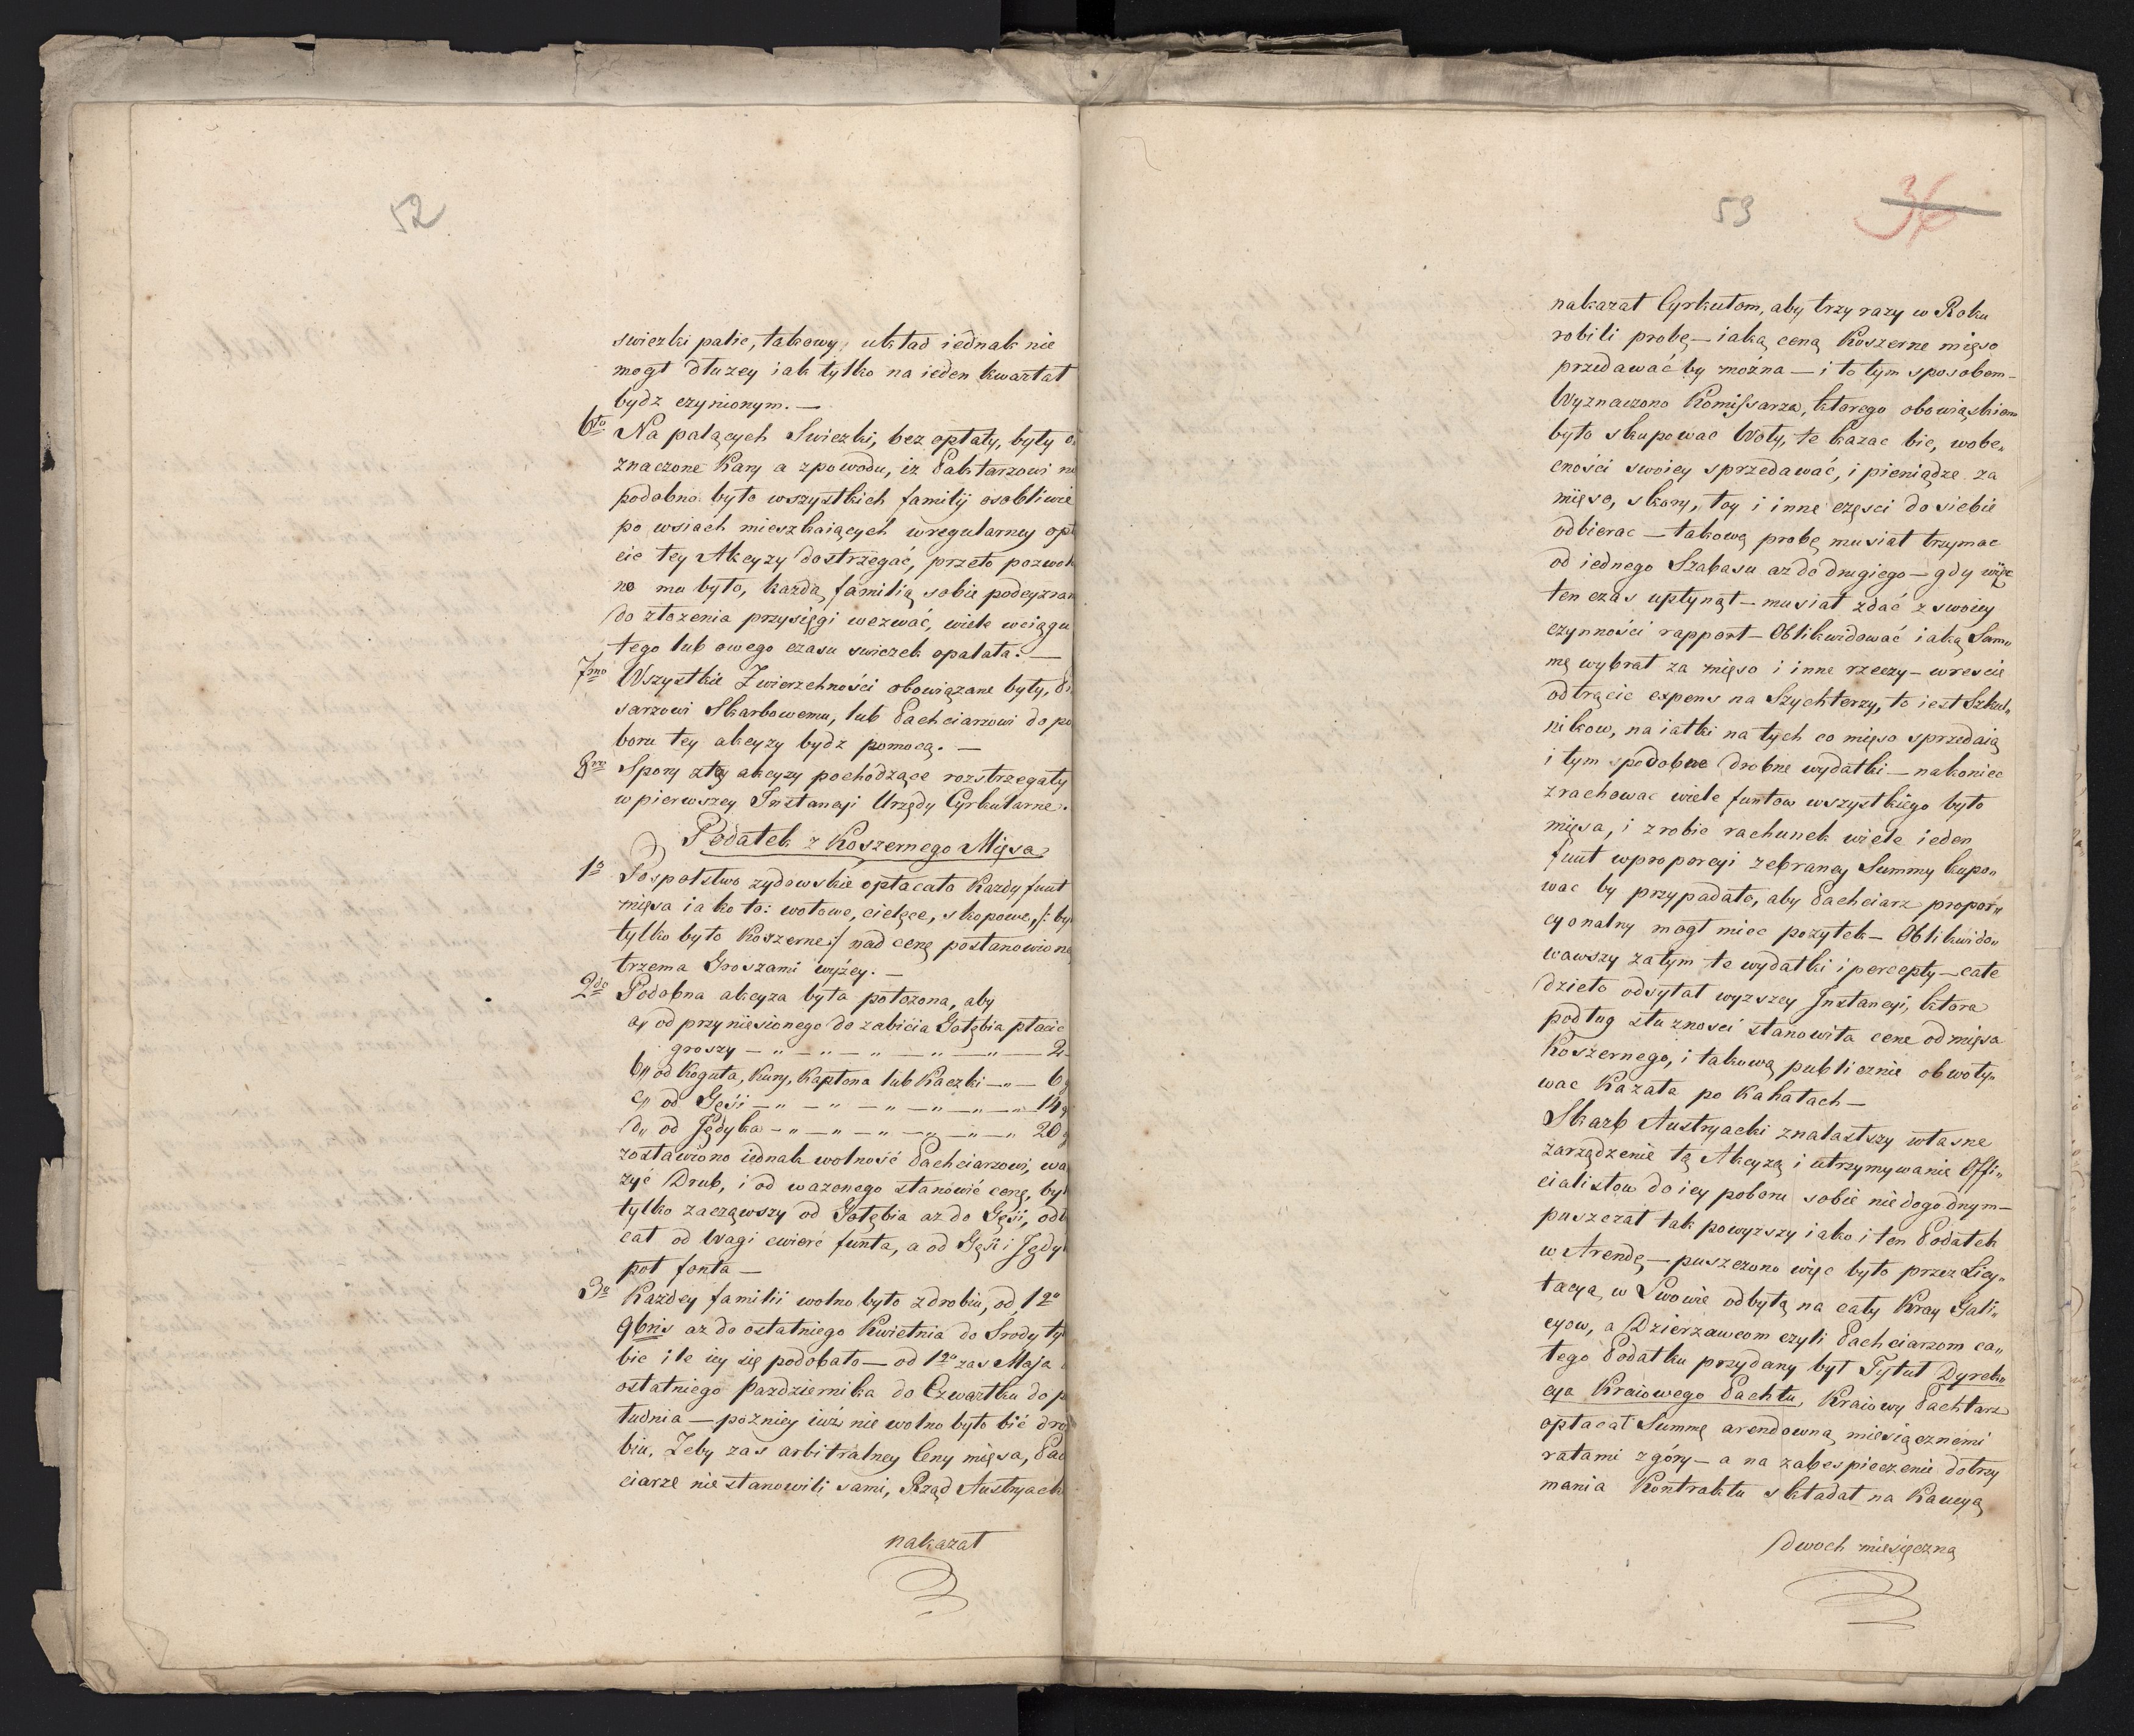 52
swiezki palic, takowy układ iednak nie
mogł dłuzey iak tylko na ieden kwartał
bydz czynionym. —
6to Na palących Swiezki, bez opłaty, były
znaczone Kary a zpowodu, iz Paktarzowi
podobno było wszystkich familij osobliwie
po wsiach mieszkaiących wregularney
cie tey Akcyzy dostrzegać, przeto pozwol
no mu było, każdą familią sobie podeyzran
do złozenia przysięgi wezwać, wiele wciągu
tego lub owego czasu swiezek opalała. —
7mo Wszystkie Zwierzchności obowiązane były,
sarzowi Skarbowemu, lub Pachciarzowi do po
boru tey akcyzy bydz pomocą. —
8vo Spory ztey akcyzy pochodzące rozstrzegały
w pierwszey Instancyi Urzędy Cyrkularne.
Podatek z Koszernego Mięsa
1o Pospolstwo zydowskie opłacało Kazdy funt
mięsa iako to: wołowe, cielęce, skopowe, /: by
tylko było Koszerne :/ nad cenę postanowioną
trzema Groszami wyżey. —
2do Podobna akcyza była położona, aby
a,, od przyniesionego do zabicia Gołębia płacic
groszy — „ — „ — „ — „ — „ — 2
b,, od Koguta, Kury, Kapłona lub Kaczki — „ — 6
c,, od Gęśi — „ — „ — „ — „ — „ — „ 14
d,, od Jędyka — „ — „ — „ — „ — „ — „ 20
zostawiono iednak wolność Pachciarzowi, wa
żyć Drub, i od wazonego stanowić cenę, by
tylko zacząwszy od Gołębia az do Gęśi,
cał od Wagi cwierc funta, a od Gęśi i Jędy
poł fonta —
3o Każdey familii wolno było z drobiu, od 1go
9bris az do ostatniego Kwietnia do Srody
bic ile iey się podobało — od 1go zas Maja
ostatniego Pazdziernika do Czwartku do p
łudnia — pozniey iuż nie wolno było bić dro
biu. Zeby zas arbitralney Ceny mięsa, Pac
ciarze nie stanowili sami, Rząd Austryack
nakazał
53
36
nakazał Cyrkułom, aby trzy razy w Roku
robili probę — iaką ceną Koszerne mięso
przedawać by można — i to tym sposobem —
Wyznaczono Komissarza, ktorego obowiąskiem
było skupowac Woły, te kazac bic, wobe„
cności swoiey sprzedawać, i pieniądze za
mięso, skory, łoy i inne częsci do siebie
odbierac — takową probę musiał trzymac
od iednego Szabasu az do drugiego — gdy więc
ten czas upłynął — musiał zdać z swoiey
czynności rapport — Oblikwidować iaką Sum„
mę wybrał za mięso i inne rzeczy — wrescie
odtrącic expens na Szychterzy, to iest Szkol„
nikow, na iatki na tych co mięso sprzedaią
i tym podobne drobne wydatki — nakoniec
zrachowac wiele funtow wszystkiego było
mięsa, i zrobic rachunek wiele ieden
funt wproporcyi zebraney Summy kupo„
wac by przypadało, aby Pachciarz propor„
cyonalny mogł miec pozytek — Oblikwido„
wawszy zatym te wydatki i percepty — całe
dzieło odsyłał wyzszey Instancyi, ktora
podług słuznosci stanowiła cene od mięsa
Koszernego, i takową publicznie obwoły„
wac Kazała po Kahałach —
Skarb Austryacki znalastszy własne
zarządzenie tą Akcyzą i utrzymywanie Offi„
cialistow do iey poboru sobie niedogodnym —
puszczał tak powyzszy iako i ten Podatek
w Arendę — puszczono więc było przez Licy„
tacyą w Lwowie odbytą na cały Kray Gali„
cyow, a Dzierzawcom czyli Pachciarzom ca„
łego Podatku przydany był Tytuł Dyrek„
cya Kraiowego Pachtu, Kraiowy Pachtarz
opłacał Summę arendowną miesięcznemi
ratami z góry — a na zabespieczenie dotrzy
mania Kontraktu składał na Kaucyą
dwoch miesięczną